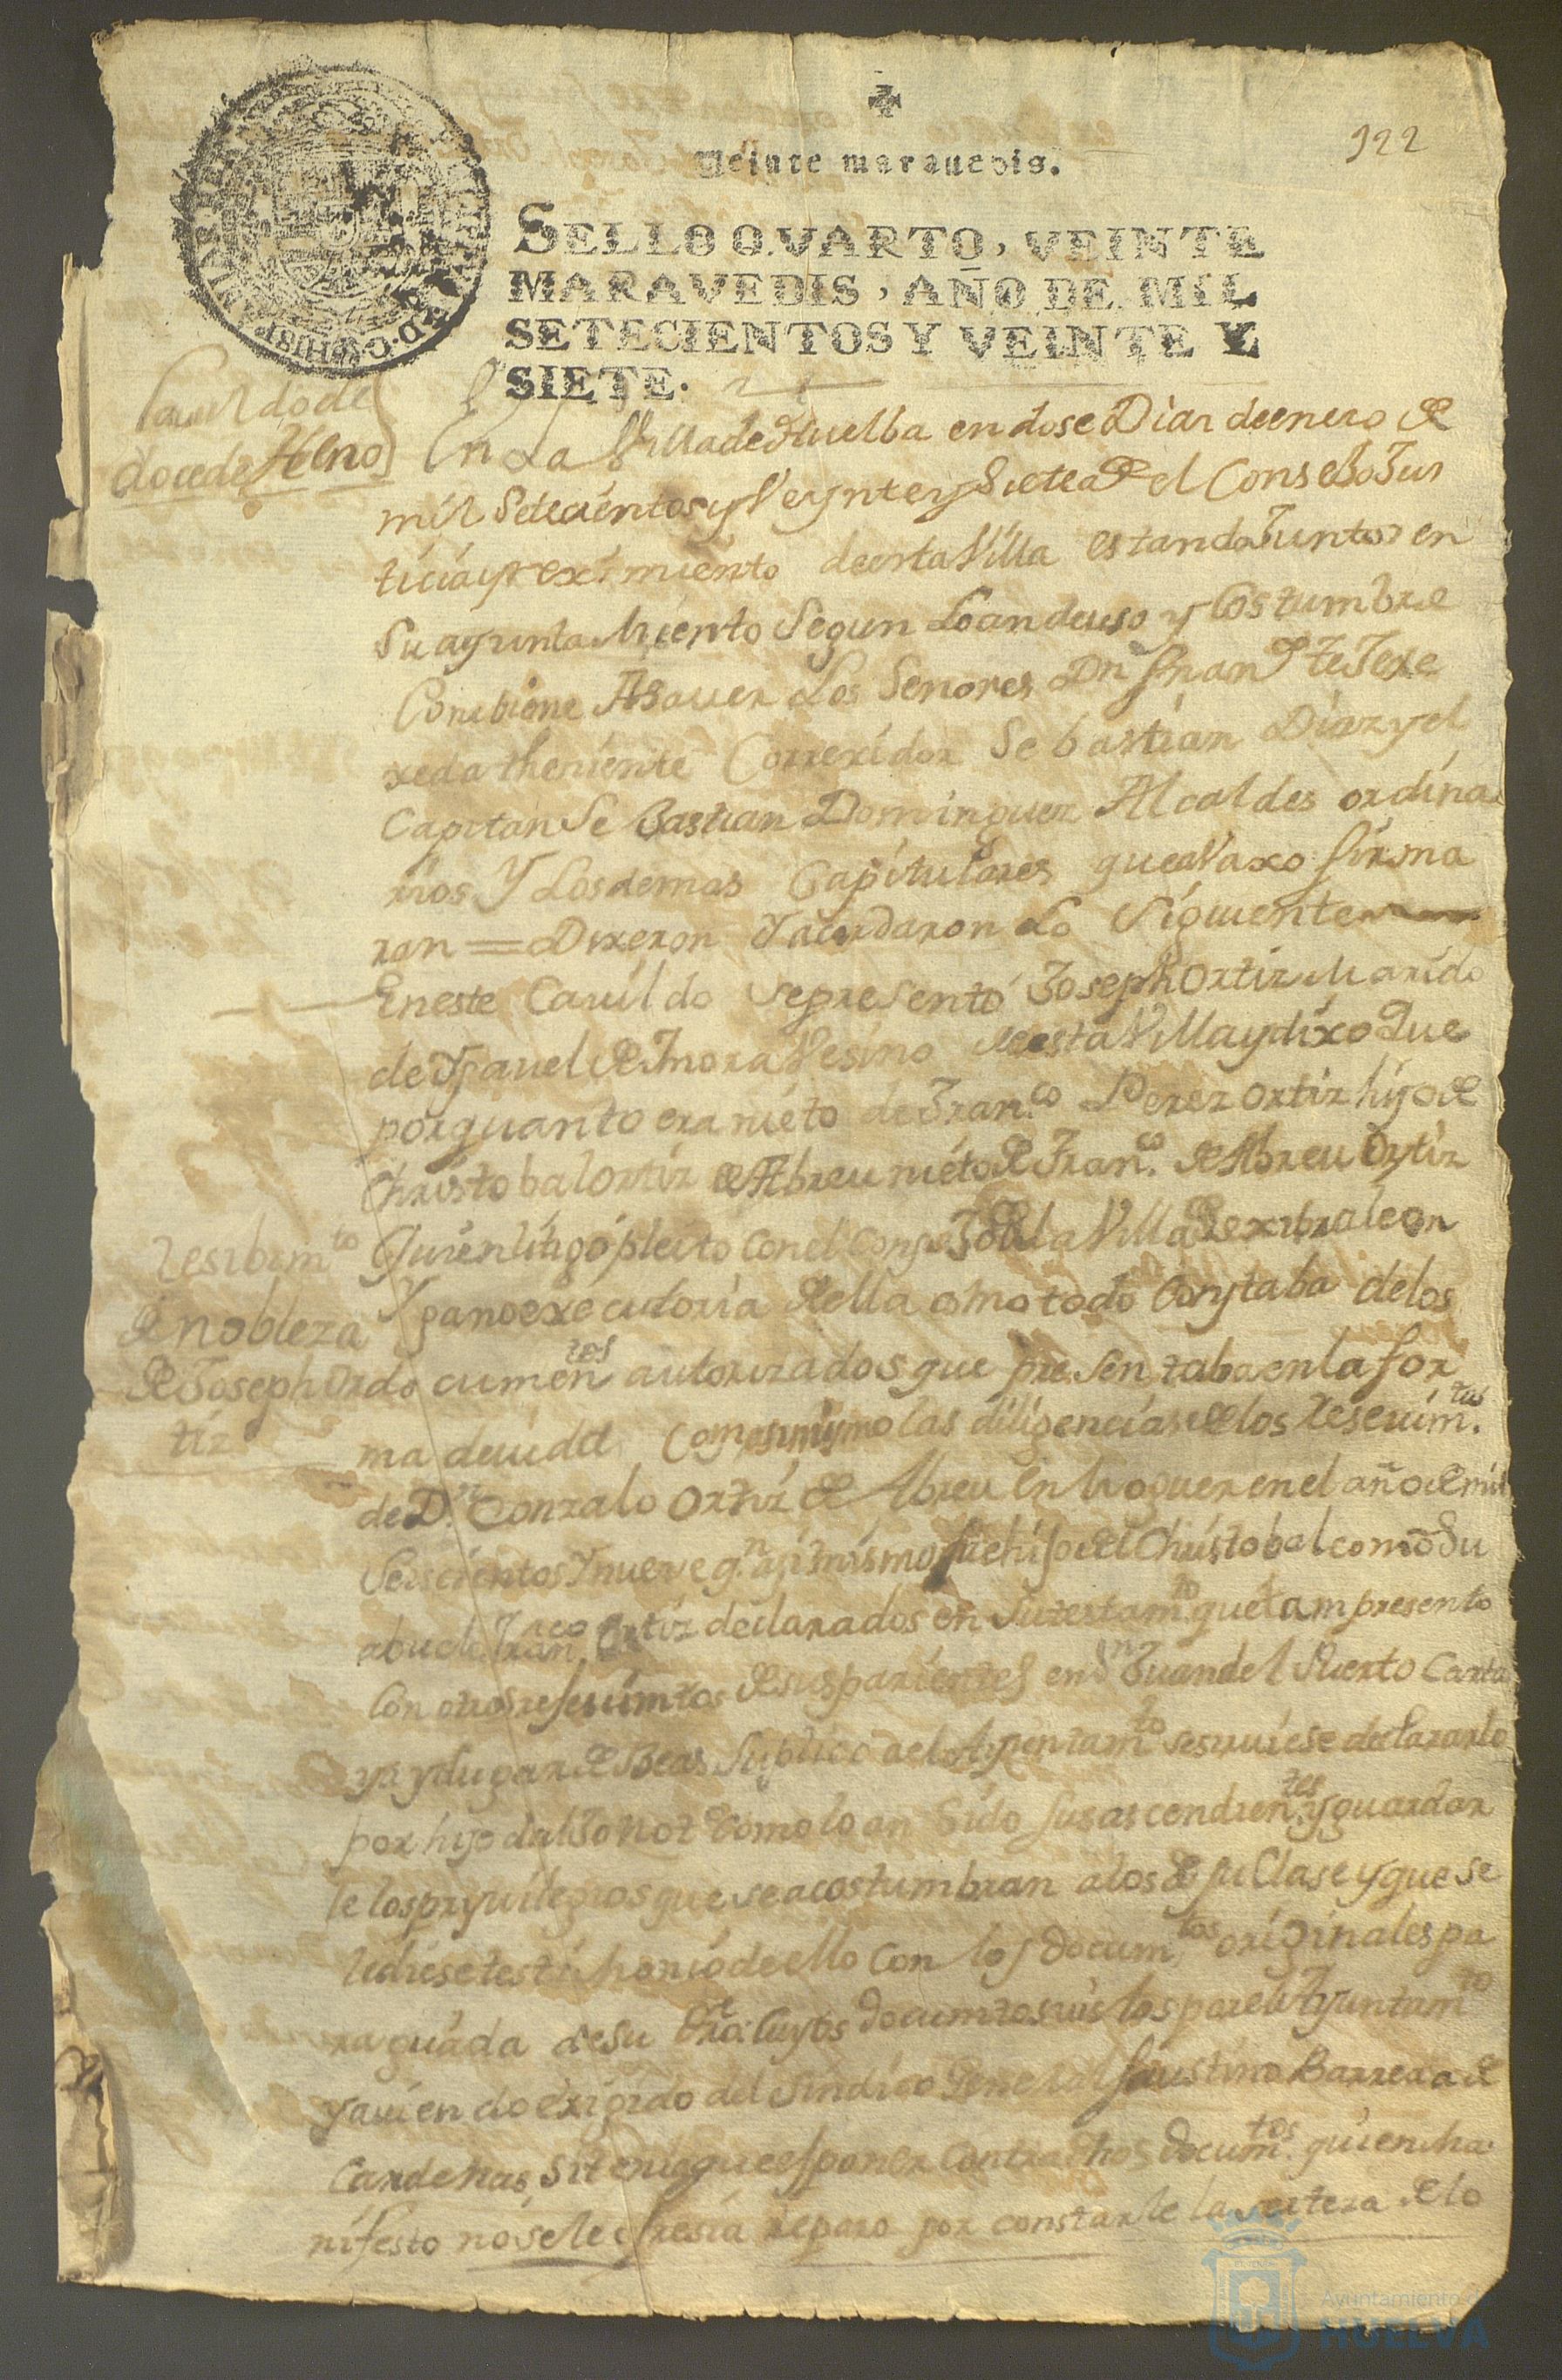 922
Veinte marauedis.
SELLO QVARTO, VEINTE
MARAVEDIS, AÑO DE MIL
SETECIENTOS Y VEINTE Y
SIETE.
Cauildo de
doce de Heno
En La Villa de Huelba en dose Dias de enero de
mil Setecientos y Veynte y Siete a el Consejo Jus
ticia y reximiento de esta Villa estando Juntos en
Su ayuntamiento Segun Lo an de uso y Costumbre
Conbiene Asauer Los Senores Dn Fran te Jexe
xeda theniente Correxidor Sebastian Diaz y el
Capitan Sebastian Dominguez Alcaldes ordina
rios Y Los demas Capitulares que aVaxo firma
ran = Dixeron Y acordaron Lo Siguiente
En este Cauildo se presentó Joseph Ortiz Marido
de Ysauel de Mora Vesino de esta Villa y dixo Que
por quanto era nieto de Fran.co Perez Ortiz hijo de
Christobal Ortiz de Abreu nieto de Fran.co de Abreu Ortiz
Resibim.to
de nobleza
de Joseph Or
tiz
Quien litigó pleito con el Consejo de la Villa de Xibraleon
Y gano executoria de ella como todo Constaba de los
documen.tes autorizados que presentaba en la for
ma deuida Como asimismo las diligencias de los Reseuim.tos
de D.n Gonzalo Ortiz de Abreu en Moguer en el año de mil
Seiscientos Y nueve q.n asimismo fue hijo del Christobal como Su
abuelo Fran.co Ortiz declarados en Su testam.to que tam presento
Con otros reseuimtos de sus parientes en Sn Juan del Puerto Carta
ya y Lugar de Beas Suplico a el Ayuntam.to se siruiese declararlo
por hijo dalgo not como lo an Sido Sus ascendien.tes y guardar
le los pryuilegios que se acostumbran a los de su Clase y que se
le diese testimonio de ello Con los docum.tos originales pa
ra guarda de su dro: Cuyos documtos uistos por el Ayuntam.to
y auiendo exigido del Sindico General Faustino Barrera de
Cardenas, Si tenia que esponer Contra dhos docum.tos quien ma
nifesto no se le ofresia reparo por constarle la serteza de lo
Ayuntamiento de
HUELVA